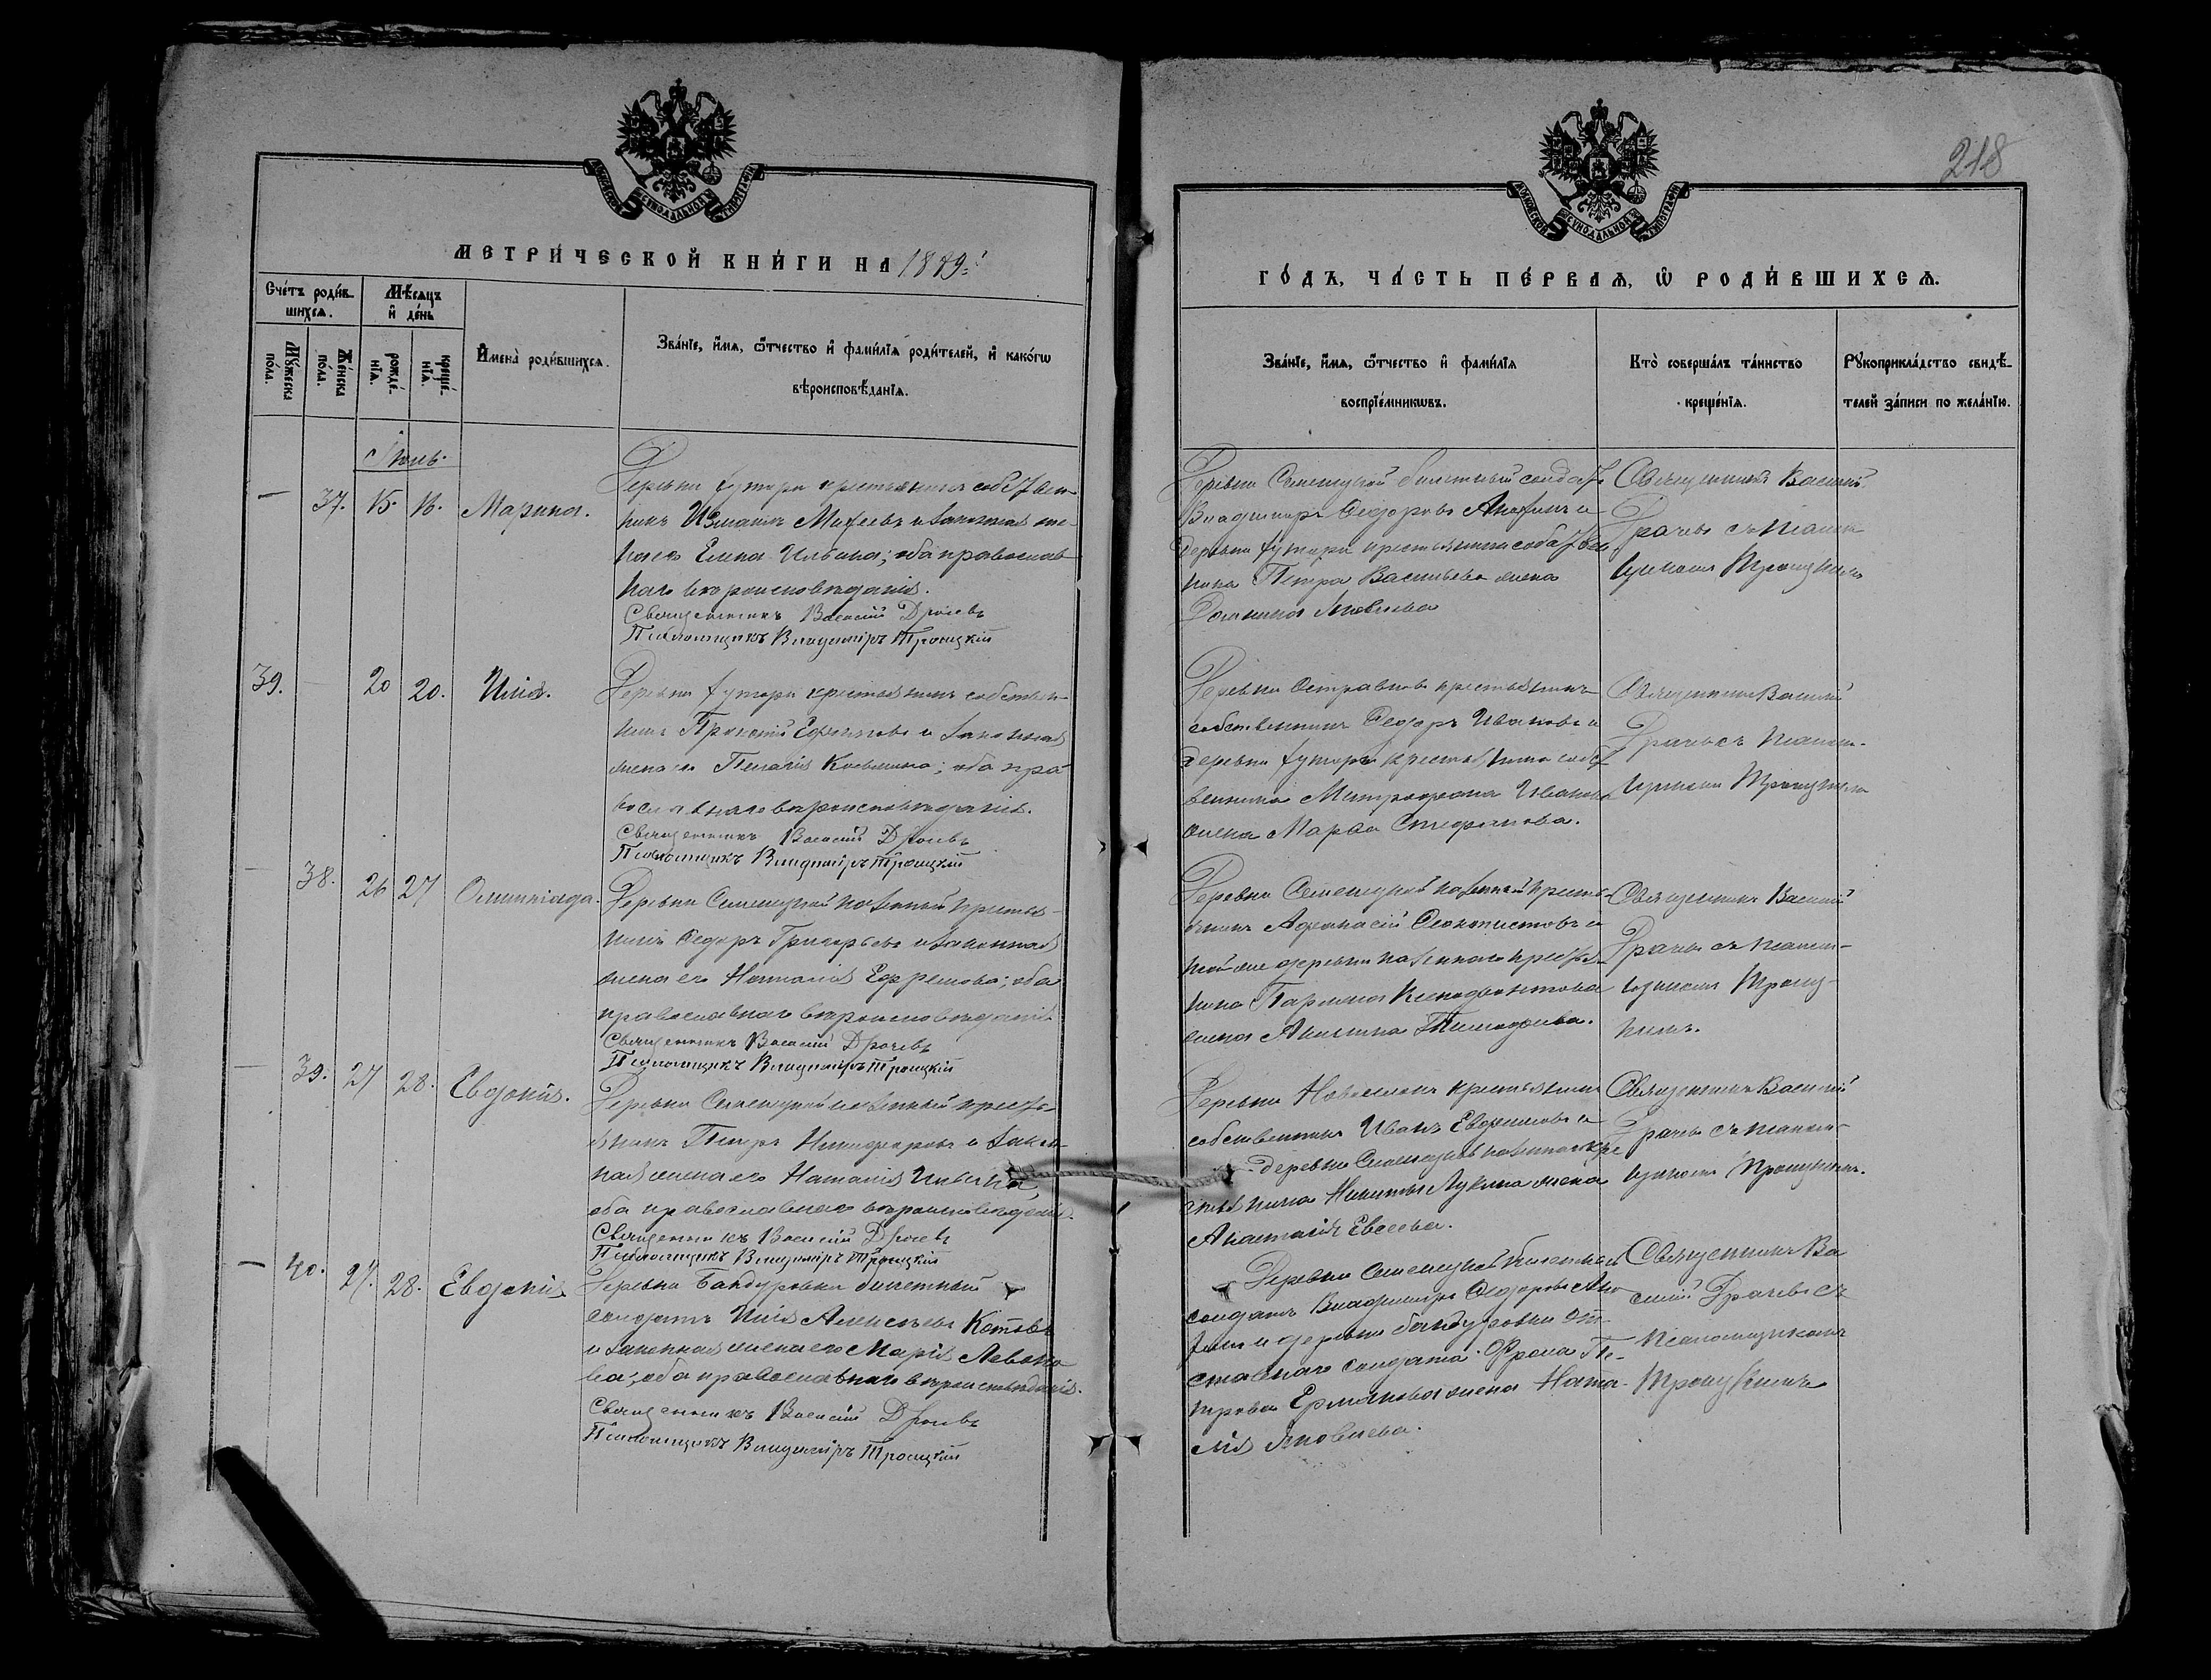 МЕТРИ́ЧЕСКОЙ КНИ́ГИ НА 1879 г.
Сче́тъ роди́в-
шихсѧ.
Мѣ́сѧцъ
и҆ де́нь
Му́жеска
по́ла.
Же́нска
по́ла.
рожде́-
нїѧ.
креще́-
нїѧ.
И҆мена̀ роди́вшихсѧ.
Зва́нїе, и҆́мѧ, ѻ҆́тчество и҆ фами́лїѧ роди́телей, и҆ како́гѡ
вѣроисповѣ́данїѧ.
Іюль.
— 37. 15. 16. Марина.
Деревни Хутора крестьянинъ собствен-
никъ Измаилъ Михеевъ и законная же-
на его Елена Ильина; оба православ
наго вѣроисповѣданія.
Священникъ Василій Драчевъ
Псаломщикъ Владиміръ Троицкій
39. — 20 20. Илія.
Деревни Хутора крестьянинъ собствен-
никъ Прокопій Ефимовъ и законная
жена его Пелагія Косьмина; оба пра
вославнаго вѣроисповѣданія.
Священникъ Василій Драчевъ
Псаломщикъ Владиміръ Троицкій
— 38. 26 27 Олимпіада.
Деревни Семенцкой казенный крестья-
нинъ Федоръ Григорьевъ и законная
жена его Наталія Ефремова; оба
православнаго вѣроисповѣданія.
Священникъ Василій Драчевъ
Псаломщикъ Владиміръ Троицкій
— 39. 27 28. Евдокія.
Деревни Семенцкой казенный кресть-
янинъ Петръ Никифоровъ и закон-
ная жена его Наталія Ильина;
оба православнаго вѣроисповѣданія.
Священникъ Василій Драчевъ
Псаломщикъ Владиміръ Троицкій
— 40. 27. 28. Евдокія
Деревни Бандуровки билетный
солдатъ Илія Алексѣевъ Котовъ
и законная жена его Марія Левоно
ва; оба православнаго вѣроисповѣданія.
Священникъ Василій Драчевъ
Псаломщикъ Владиміръ Троицкій
218
ГО́ДЪ, ЧА́СТЬ ПЕ́РВАѦ, Ѡ҆ РОДИ́ВШИХСѦ.
Зва́нїе, и҆́мѧ, ѻ҆́тчество и҆ фами́лїѧ
воспрїе́мникѡвъ.
Кто̀ соверша́лъ та́инство
креще́нїѧ.
Рꙋкоприкла́дство свидѣ́-
телей за́писи по жела́нїю.
Деревни Семенцкой билетный солдатъ
Владиміръ Федоровъ Анохинъ и
деревни Хутора крестьянина собствен
ника Петра Васильева жена
Яковлева
Священникъ Василій
Драчевъ съ псалом
щикомъ Троицкимъ
Деревни Островковъ крестьянинъ
собственникъ Федоръ Ивановъ и
деревни Хутора крестьянина собст
венника Митрофана Иванова
жена Марѳа Стефанова.
Священникъ Василій
Драчевъ съ псалом-
щикомъ Троицкимъ
Деревни Семенцкой казенный кресть
янинъ Афанасій Феоктистовъ и
той же деревни казеннаго крестья-
нина жена Акилина Тимофеева.
Священникъ Василій
Драчевъ съ псалом-
щикомъ Троиц-
кимъ.
Деревни крестьянинъ
собственникъ Иванъ Евфимовъ и
деревни Семенцкой казеннаго кре
стьянина Никиты Лукина жена
Анастасія Евсеева.
Священникъ Василій
Драчевъ съ псалом-
щикомъ Троицкимъ.
Деревни Семенцкой билетный
солдатъ Владиміръ Федоровъ Ано
хинъ и деревни Бандуровки от-
ставнаго солдата Фрола Пе-
трова Ермакова жена Ната-
лія Яковлева.
Священникъ Ва
силій Драчевъ съ
псаломщикомъ
Троицкимъ